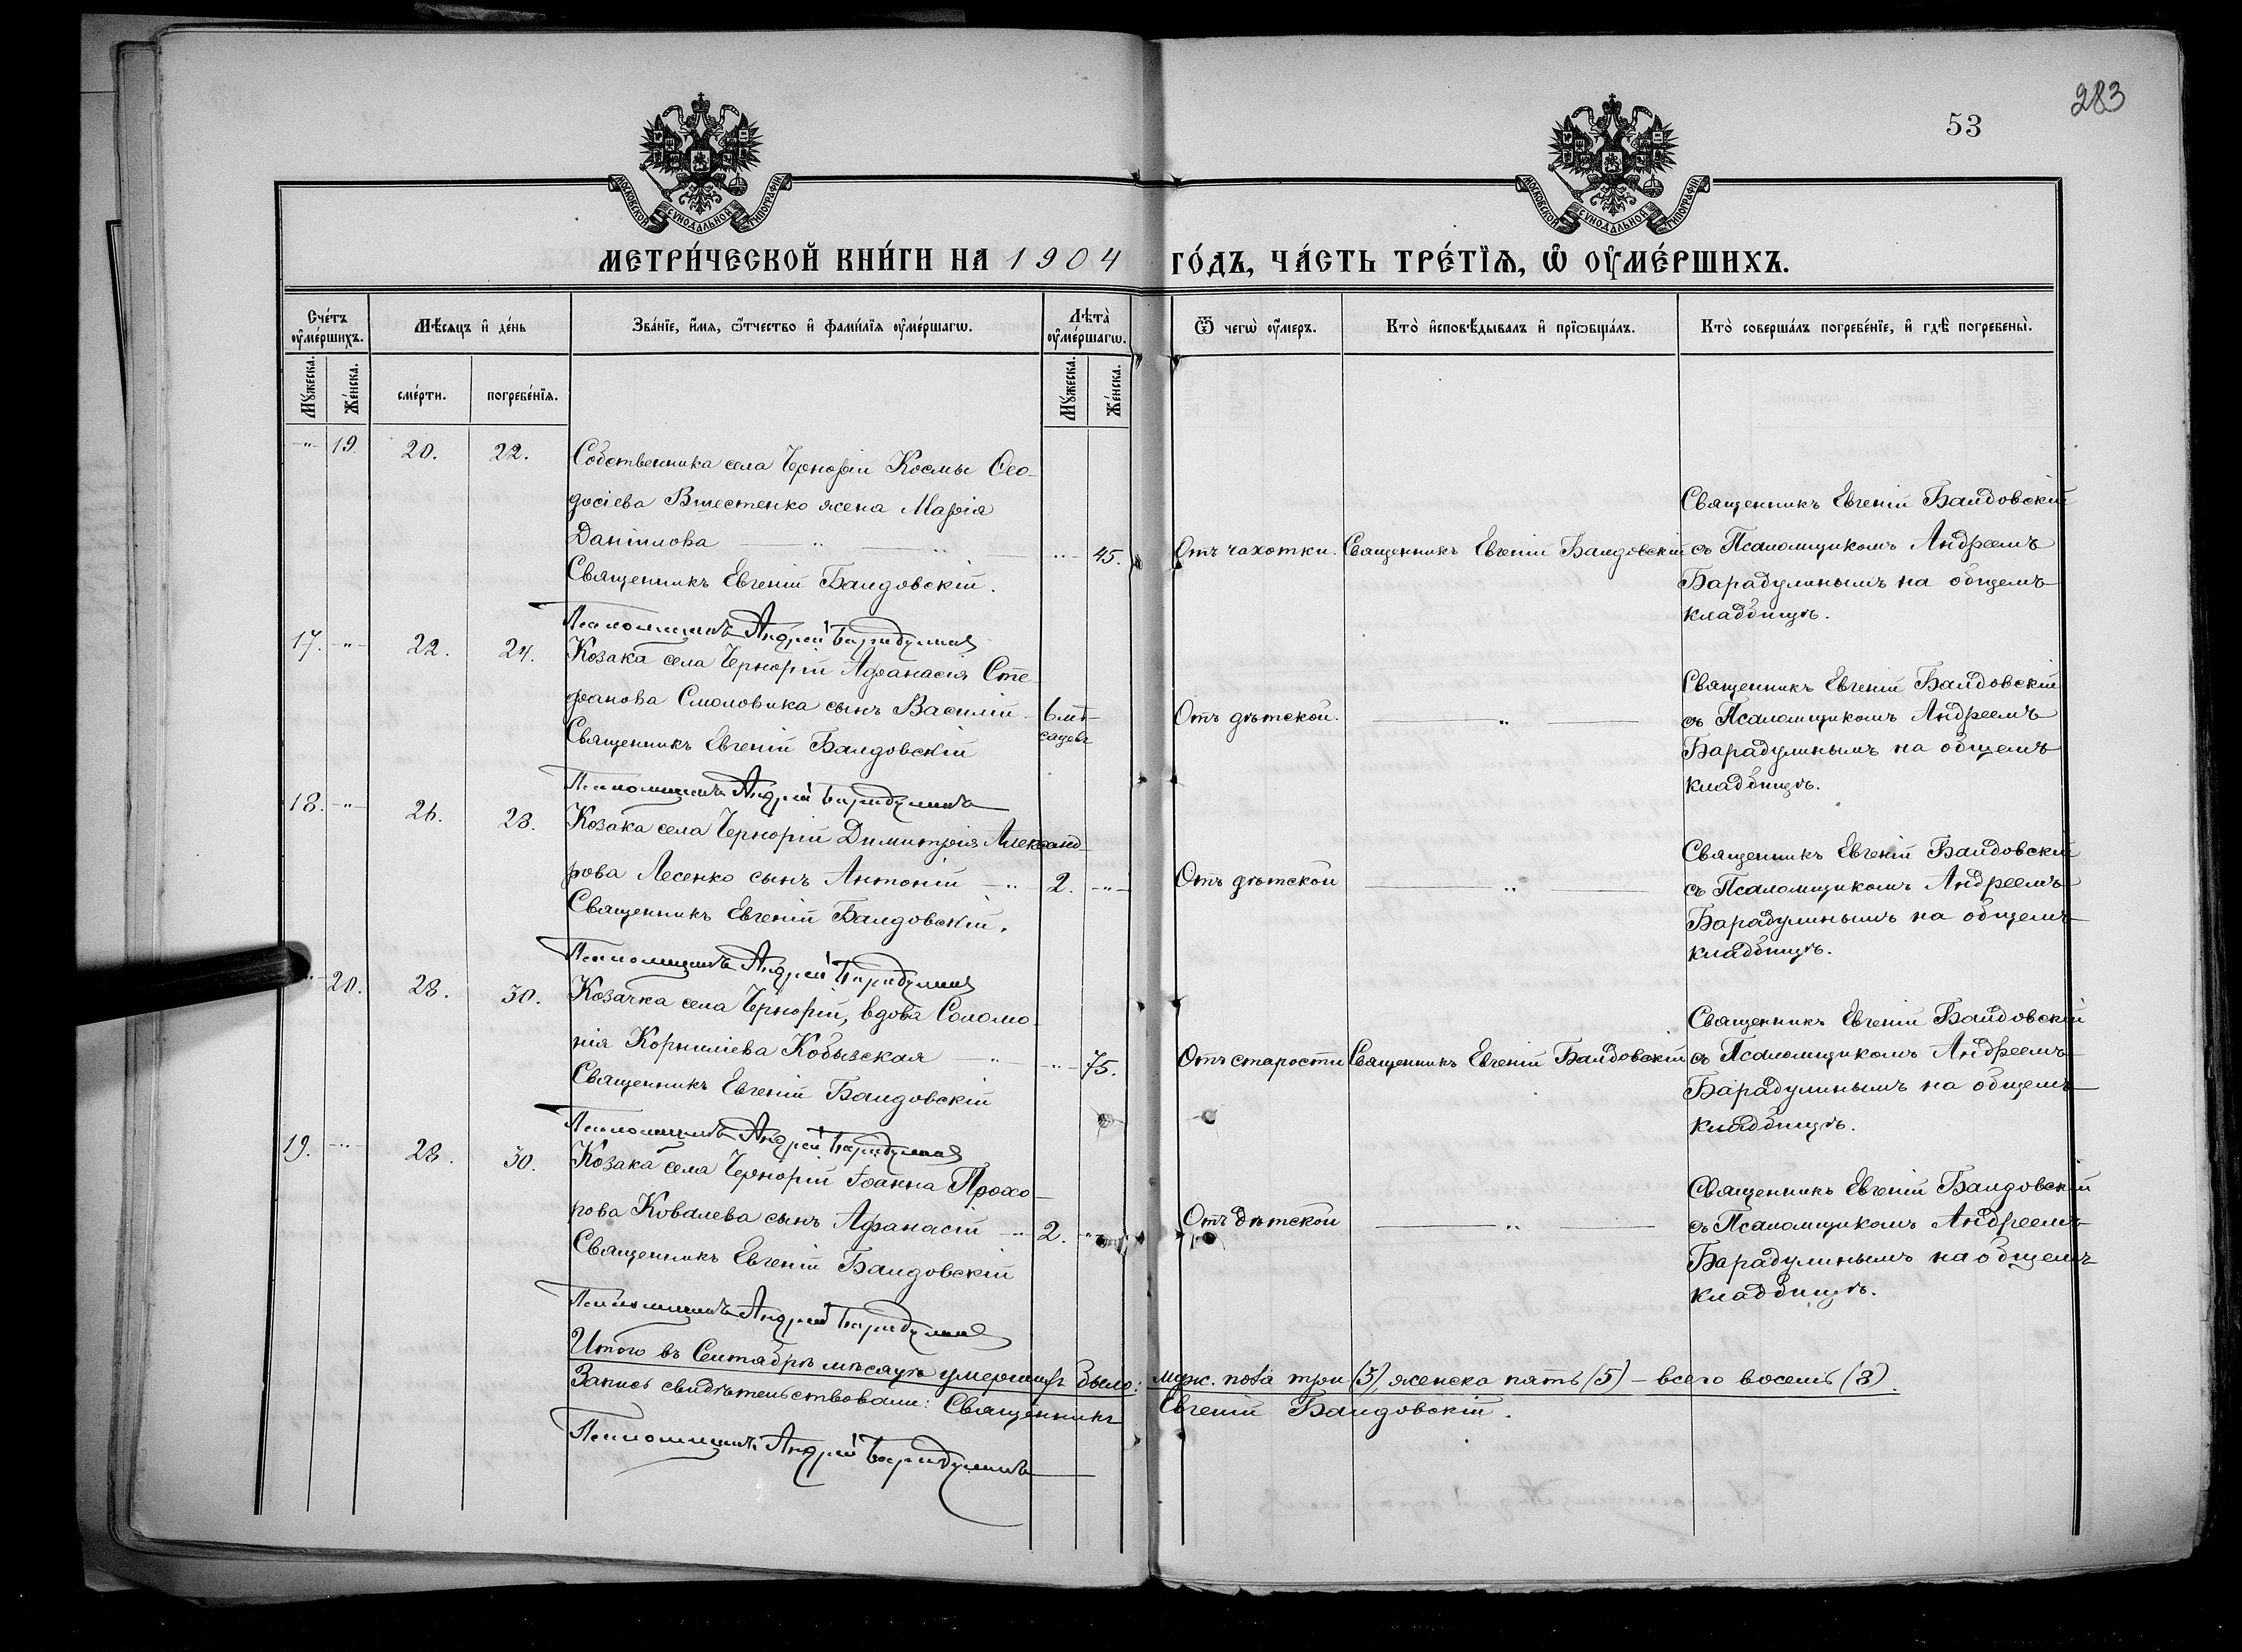 283
53
МОСКОВСКОЙ СѴНОДАЛЬНОЙ ТИПОГРАФІИ
МОСКОВСКОЙ СѴНОДАЛЬНОЙ ТИПОГРАФІИ
МЕТРИ́ЧЕСКОЙ КНИ́ГИ НА 1904 ГО́ДЪ, ЧА́СТЬ ТРЕ́ТІѦ, Ѽ ОУ҆МЕ́РШИХЪ.
Сче́тъ оу҆ме́ршихъ.
Мѣ́сяцъ и҆ де́нь
Зва́нїе, и҆́мя, ѻ҆́тчество и҆ фами́лїя оу҆ме́ршагѡ.
Лѣ́та̀ оу҆ме́ршагѡ.
Ѿ чегѡ̀ оу҆́меръ.
Кто̀ и҆сповѣ́дывалъ и҆ прїѡбща́лъ.
Кто̀ соверша́лъ погребе́нїе, и҆ гдѣ̀ погребены̀.
Мꙋ́жеска.
Же́нска.
сме́рти.
погребе́нїя.
Мꙋ́жеска.
Же́нска.
-"- 19. 20. 22.
Собственника села Чернорій Космы Ѳео-
досіева Вшестенко жена Марія
Даніилова -"- 45.
Священникъ Евгеній Баидовскій.
Псаломщикъ Андрей Барадулинъ
Отъ чахотки. Священникъ Евгеній Баидовскій
Священникъ Евгеній Баидовскій
съ Псаломщикомъ Андреемъ
Барадулинымъ на общемъ
кладбищѣ.
17. -"- 22. 24.
Козака села Чернорій Афанасія Сте-
фанова Смоловика сынъ Василій. 6 мѣ-
сяцевъ
Священникъ Евгеній Баидовскій
Псаломщикъ Андрей Барадулинъ
Отъ дѣтской. — " —
Священникъ Евгеній Баидовскій
съ Псаломщикомъ Андреемъ
Барадулинымъ на общемъ
кладбищѣ.
18. -"- 26. 28.
Козака села Чернорій Димитрія Александ-
рова Лесенко сынъ Антоній -"- 2. -"-
Священникъ Евгеній Баидовскій.
Псаломщикъ Андрей Барадулинъ
Отъ дѣтской — " —
Священникъ Евгеній Баидовскій
съ Псаломщикомъ Андреемъ
Барадулинымъ на общемъ
кладбищѣ.
-"- 20. 28. 30.
Козачка села Чернорій, вдова Соломо-
нія Корниліева Кобызская -"- 75.
Священникъ Евгеній Баидовскій
Псаломщикъ Андрей Барадулинъ
Отъ старости Священникъ Евгеній Баидовскій
Священникъ Евгеній Баидовскій
съ Псаломщикомъ Андреемъ
Барадулинымъ на общемъ
кладбищѣ.
19. -"- 28. 30.
Козака села Чернорій Іоанна Прохо-
рова Ковалева сынъ Афанасій -"- 2. -"-
Священникъ Евгеній Баидовскій
Псаломщикъ Андрей Барадулинъ
Отъ дѣтской — " —
Священникъ Евгеній Баидовскій
съ Псаломщикомъ Андреемъ
Барадулинымъ на общемъ
кладбищѣ.
Итого въ Сентябрѣ мѣсяцѣ умершихъ было: муж. пола три (3), женска пять (5) – всего восемь (8).
Запись свидѣтельствовали: Священникъ Евгеній Баидовскій.
Псаломщикъ Андрей Барадулинъ